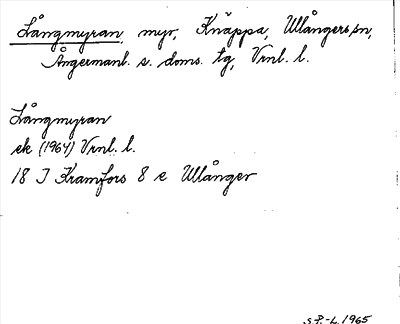 Långmyran, myr, Knäppa, Ullångers sn,
Ångermanl. s. doms. tg, Vrnl. l.
Långmyran
ek (1964) Vrnl. l.
18 J Kramfors 8 e Ullånger
S.P.-L. 1965